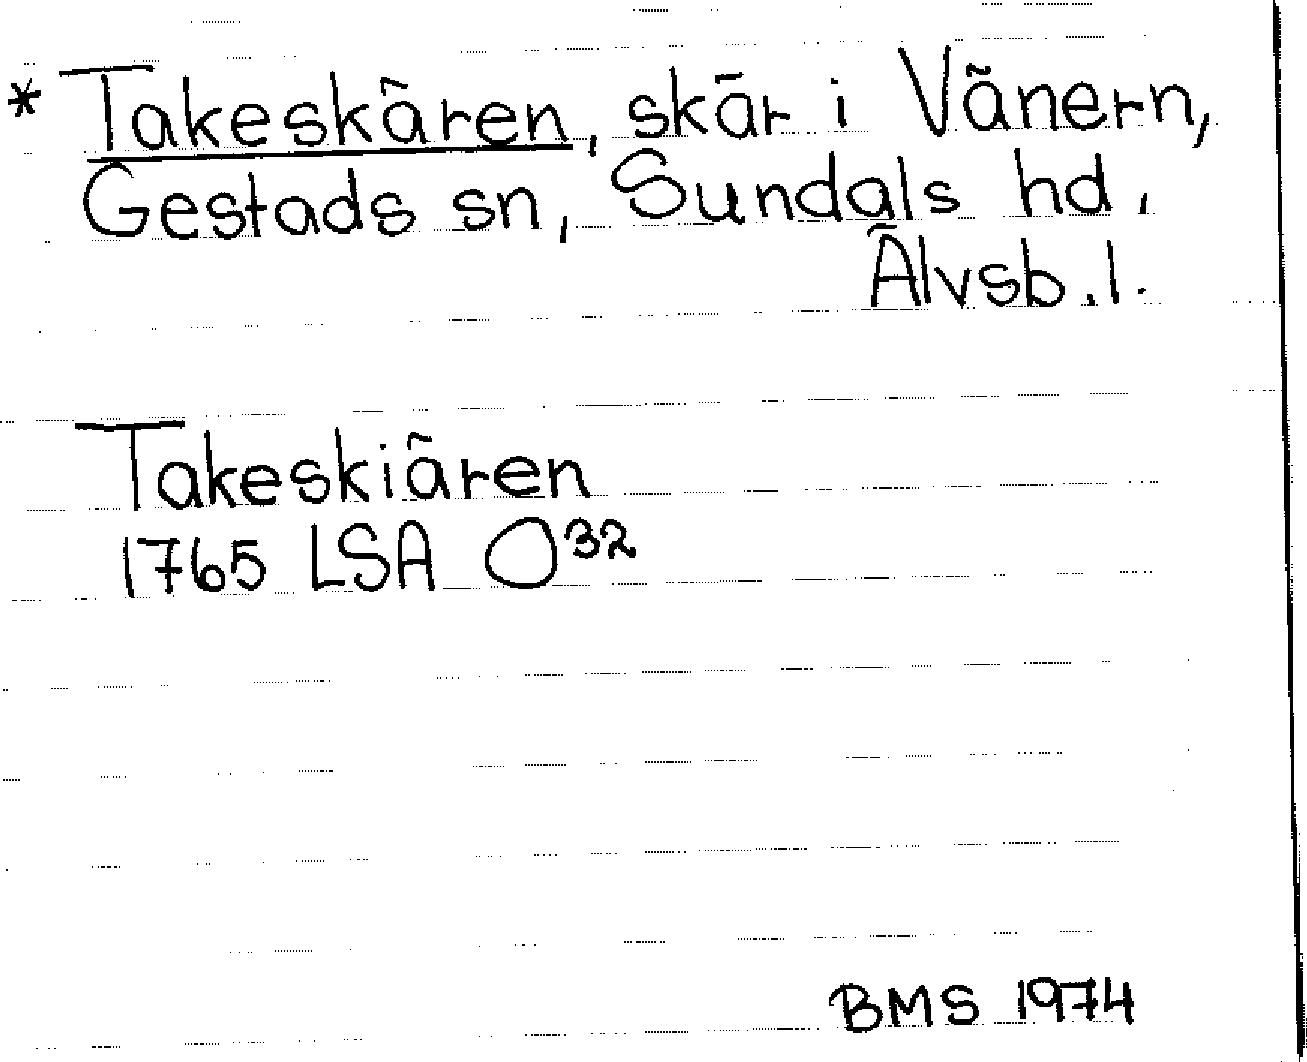 * Takeskären, skär i Vänern,
Gestads sn, Sundals hd,
Älvsb. l.
Takeskiären
1765 LSA O32
BMS 1974